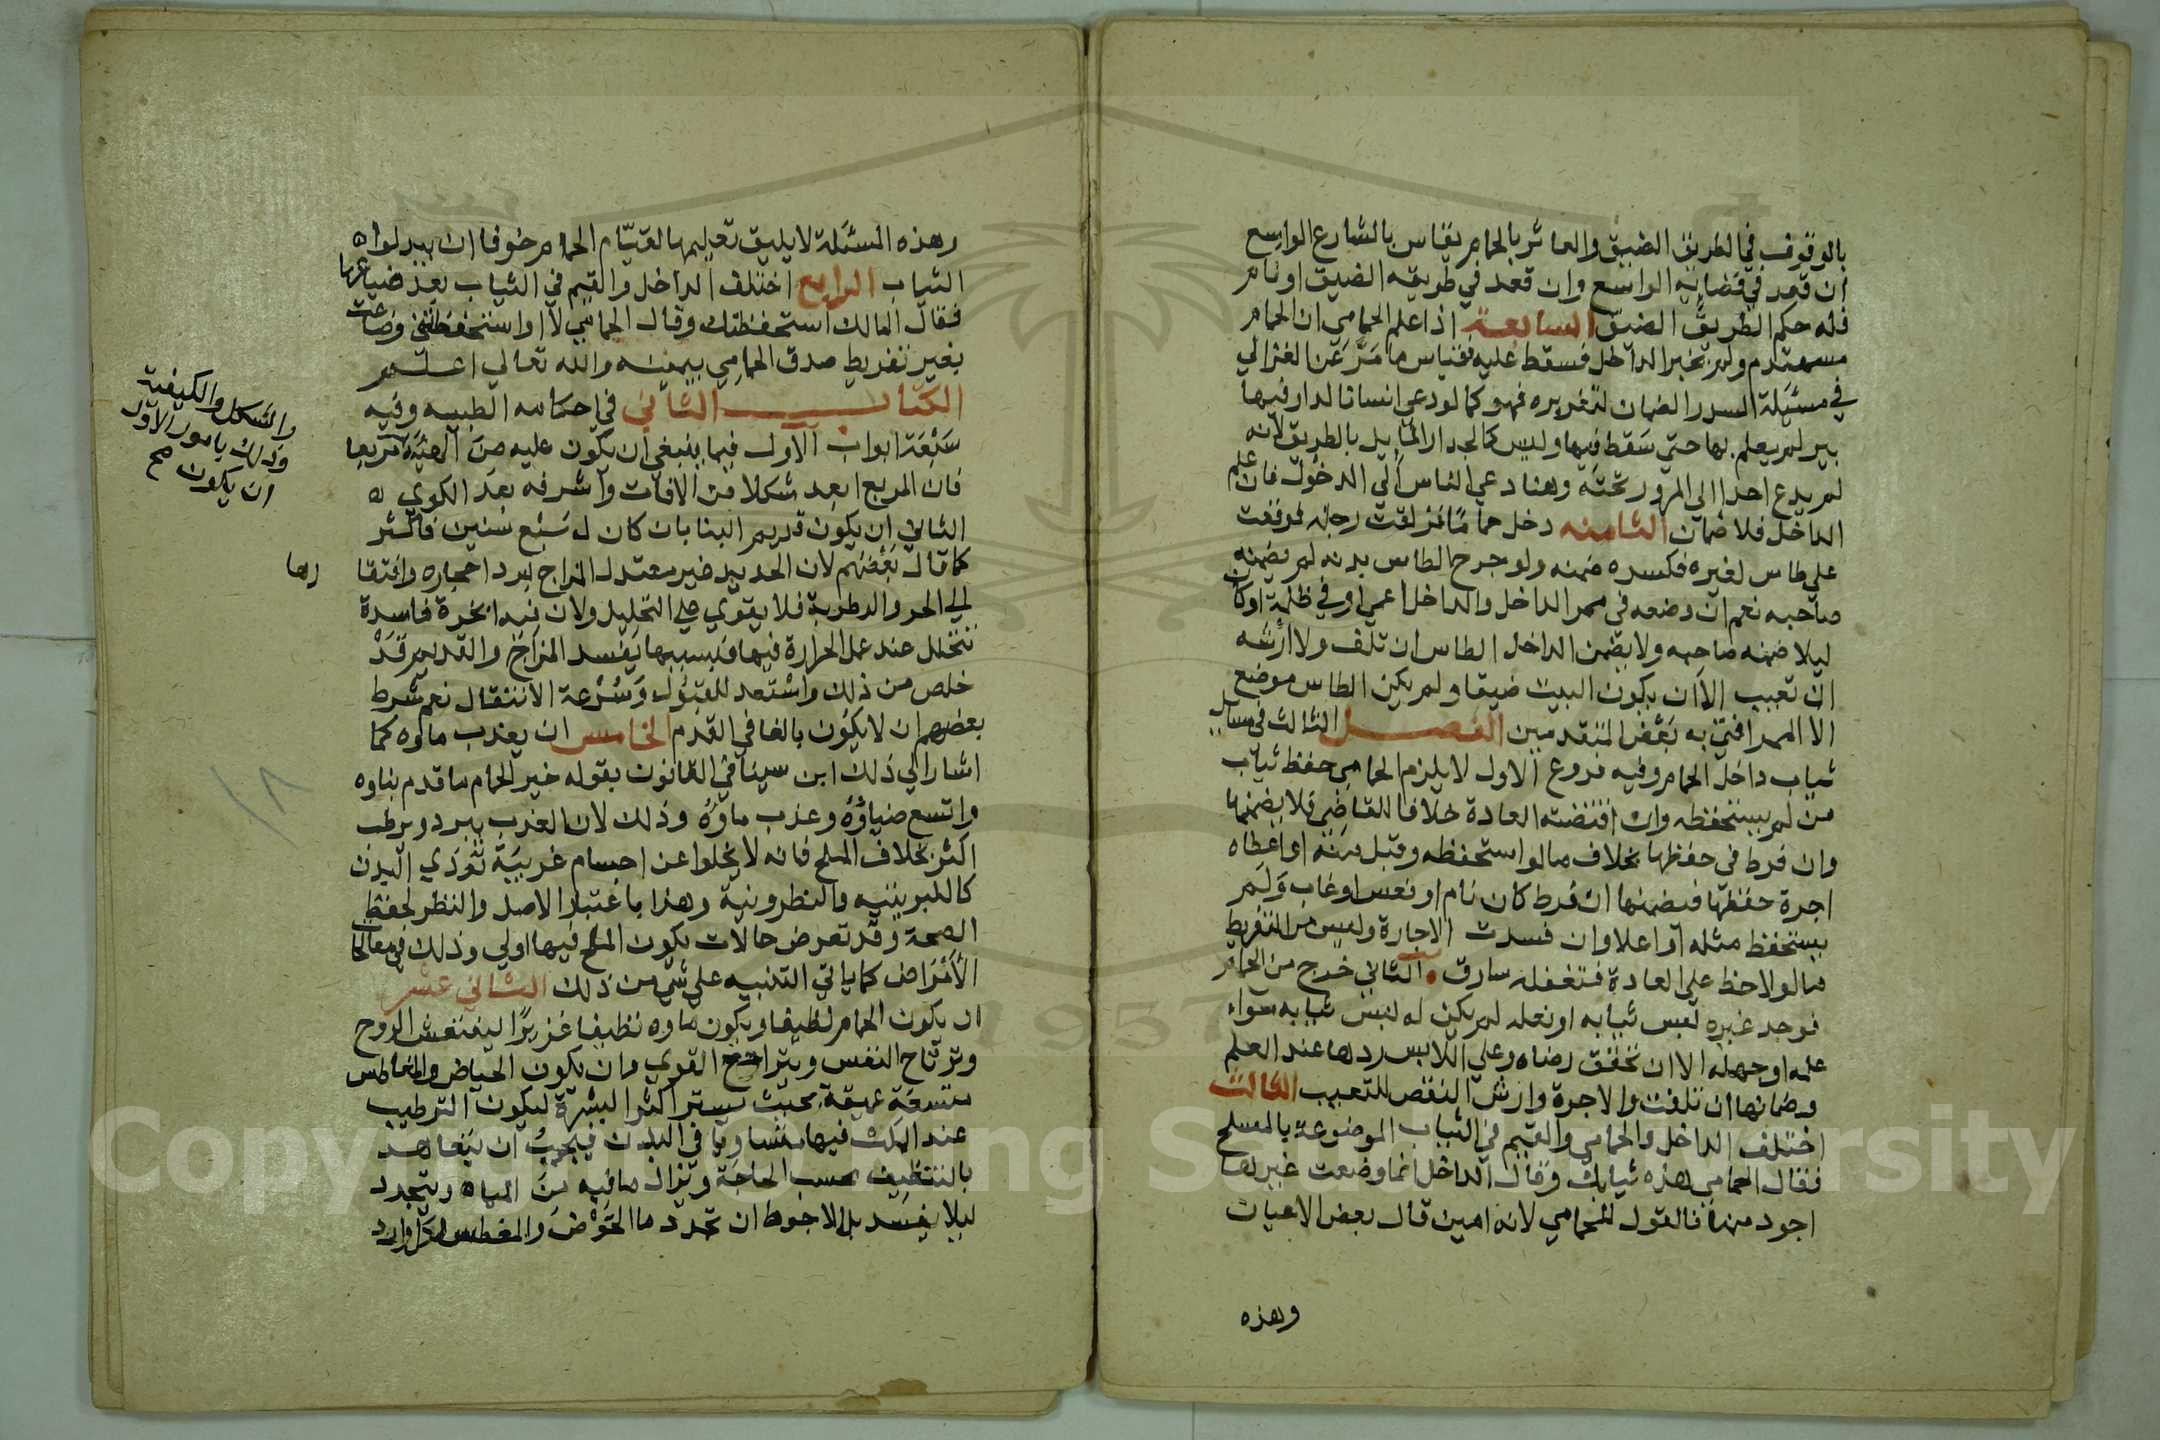 بالوقوف في الطريق الضيق والعاثر بالحمام يقاس بالشارع الواسع
ان قعد في فضايه الواسع وان قعد في طريقه الضيق او نام
فله حكم الطريق الضيق السابعة اذا علم الحمامي ان الحمام
مستهدم ولم تخبر الداخل فسقط عليه فقياس ما مرَّ عن الغزالي
في مسئلة السدر الضمان لتغريره فهو كما لو دعي انسانا لدار فيها
بير لم يعلم بها حتي سقط فيها وليس كالجدار المايل بالطريق لانه
لم يدع احدا الي المرور تحته وهنا دعي الناس الي الدخول فان علم
الداخل فلا ضمان الثامنه دخل حماما فزلقت رجله فوقعت
علي طاس لغيره فكسره ضمنه ولو جرح الطاس بدنه لم يضمنه
صاحبه نعم ان وضعه في ممر الداخل والداخل اعمي او في ظلمة او كان
ليلا ضمنه صاحبه ولا يضمن الداخل الطاس ان تلف ولا ارشه
ان تعيب الا ان يكون البيت ضيقا ولم يكن الطاس موضع
الا الممر افتي به بعض المتقدمين الفصل الثالث في مسايل
ثياب داخل الحمام وفيه فروع الاول لا يلزم الحمامي حفظ ثياب
من لم يستحفظه وان اقتضته العادة خلافا للقاضي فلا يضمنها
وان فرط في حفظها بخلاف ما لو استحفظه وقبل منه او اعطاه
اجرة حفظها فيضمنها ان فرط كان نام او نعس او غاب ولم
يستحفظ مثله او اعلا وان فسدت الاجارة وليس من التفريط
ما لو لاحظ علي العادة فتغفله سارق الثاني خرج من الحمام
فوجد غيره لبس ثيابه او نعله لم يكن له لبس ثيابه سواء
علمه او جهله الا ان تحقق رضاه وعلي اللابس ردها عند العلم
وضمانها ان تلفت والاجرة وارش النقص للتعييب الثالث
اختلف الداخل والحمامي والقيم في الثياب الموضوعة بالمسلح
فقال الحمامي هذه ثيابك وقال الداخل انما وضعت غيرها
اجود منها فالقول للحمامي لانه امين قال بعض الاعيان
وهذه
وهذه المسئلة لا يليق تعليمها لقيّام الحمام خوفا ان يبدلوا
الثياب الرابع اختلف الداخل والقيم في الثياب بعد ضياعها
فقال المالك استحفظتك وقال الحمامي لا او استحفظتني وضاعت
بغير تفريط صدق الحمامي بيمينه والله تعالي اعلم
الكتاب الثاني في احكامه الطبيه وفيه
سبعة ابواب الاول فيما ينبغي ان يكون عليه من الهيئة مربعا
فان المربع ابعد شكلا من الافات واشرفه بعد الكوي
الثاني ان يكون قديم البنا بان كان له سبع سنين فاكثر
كما قال بعضهم لان الحديد غير معتدل المزاج لبرد احجاره وافتقا
رها
الي الحر والرطوبة فلا يقوي علي التحليل ولان فيه ابخرة فاسدة
تتحلل عند عمل الحرارة فيها فبسببها يفسد المزاج والقديم قد
خلص من ذلك واستعد للقبول وسرعة الانتقال نعم شرط
بعضهم ان لا يكون بالغا في القدم الخامس ان يعذب ماوه كما
اشار الي ذلك ابن سينا في القانون بقوله خير الحمام ما قدم بناوه
واتسع ضياؤه وعذب ماوه وذلك لان العذب يبرد ويرطب
اكثر بخلاف الملح فانه لا يخلوا عن اجسام غريبة تؤذي البدن
كالكبريتيه والنطرونية وهذا باعتبار الاصل والنظر لحفظ
الصحة وقد تعرض حالات يكون الملح فيها اولي وذلك في معالجة
الأمراض كما ياتي التنبيه علي شي من ذلك الثاني عشر
ان يكون الحمام لطيفا ويكون ماوه نظيفا غزيرا لينتعش الروح
وترتاح النفس ويتراجع القوي وان يكون الحياض والمغاطس
متسعة عميقة بحيث يستر اكثر البشرة ليكون الترطيب
عند المكث فيها متساويا في البدن فيجب ان يتعاهد
بالتنظيف بحسب الحاجة ويزال ما فيه من المياه ويتجدد
ليلا يفسد بل الاحوط ان تجدد ما الحوض والمغطس لكل وارد
والشكل والكيفية
وذلك بامور الاول
ان يكون صح
١٨
Copyright © King Saud University
1957